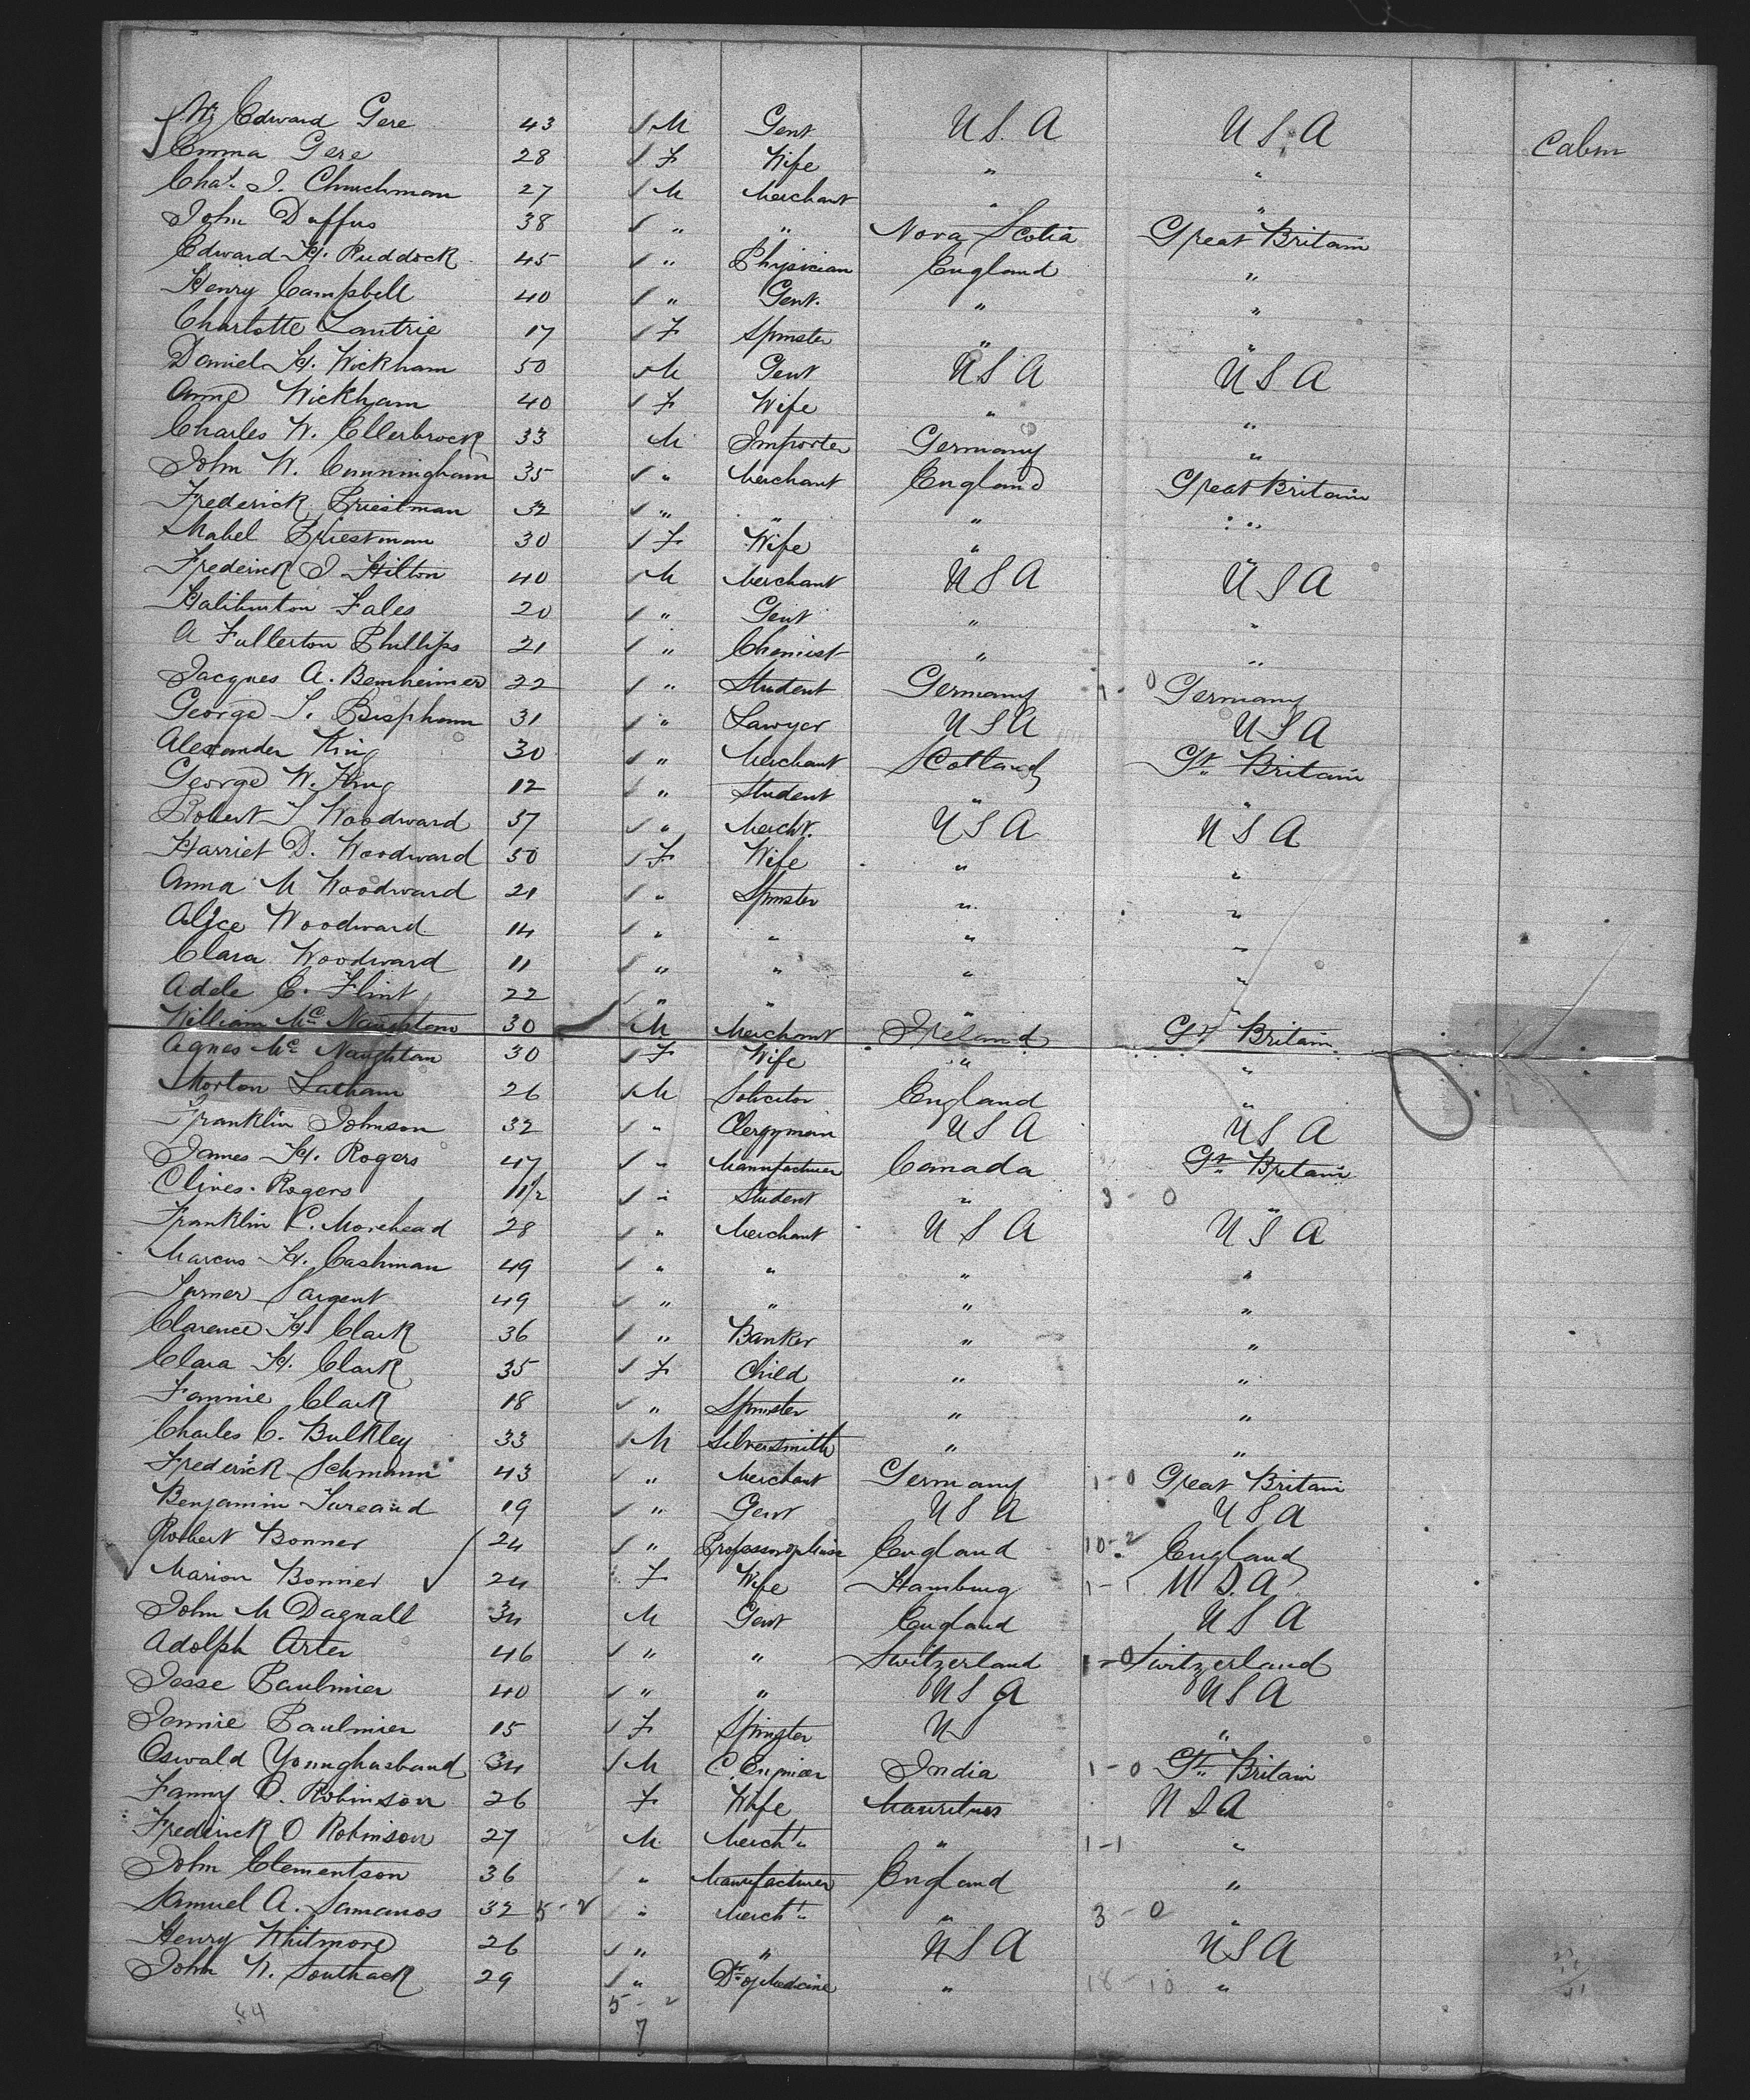 Wm Edward Gere 43 M Gent U S A U S A Cabin
Emma Gere 28 F Wife " "
Chas. J. Churchman 27 M Merchant " "
John Duffus 38 " " Nova Scotia Great Britain
Edward H. Ruddock 45 " Physician England "
Henry Campbell 40 " Gent. " "
Charlotte Lantrie 17 F Spinster " "
Daniel H. Wickham 50 M Gent U S A U S A
Anne Wickham 40 F Wife " "
Charles W. Ellerbrock 33 M Importer Germany "
John W. Cunningham 35 " Merchant England Great Britain
Frederick Priestman 32 " " " "
Mabel Priestman 30 F Wife "
Frederick J Hilton 40 M Merchant U S A U S A
Haliburton Fales 20 " Gent " "
A Fullerton Phillips 21 " Chemist " "
Jacques A. Bernheimer 22 " Student Germany 1 - 0 Germany
George T. Bispham 31 " Lawyer U S A U S A
Alexander King 30 " Merchant Scotland Gt. Britain
George W. King 12 " Student " "
Robert S Woodward 37 " Mercht. U S A U S A
Harriet D. Woodward 50 F Wife " "
Anna M Woodward 21 " Spinster " "
Alice Woodward 14 " " " "
Clara Woodward 11 " " " "
Adele C. Flint 22 " " " "
William Mc Naughton 30 M Merchant Ireland Gt. Britain
Agnes Mc Naughton 30 F Wife " "
Morton Latham 26 M Solicitor England "
Franklin Johnson 32 " Clergyman U S A U S A
James H. Rogers 47 " Manufacturer Canada Gt. Britain
Clines Rogers 11½ " Student " 3 - 0 "
Franklin C. Morehead 28 " Merchant U S A U S A
Marcus H. Cashman 49 " " " "
Turner Sargent 49 " " " "
Clarence H. Clark 36 " Banker " "
Clara H. Clark 35 F Child " "
Fannie Clark 18 " Spinster " "
Charles C. Bulkley 33 M Silversmith " "
Frederick Schmann 43 " Merchant Germany 1 - 0 Great Britain
Benjamin Tureaud 19 " Gent U S A U S A
Robert Bonner 24 " Professor of Music England 10 - 2 England
Marion Bonner 24 F Wife Hamburg 1 - 1 U S. A
John M Dagnall 34 M Gent England U S A
Adolph Arter 46 " " Switzerland 1 - 0 Switzerland
Jesse Paulmier 40 " " U S A U S A
Jennie Paulmier 15 F Spinster U "
Oswald Younghusband 34 M C. Engineer India 1 - 0 Gt. Britain
Fanny O. Robinson 26 F Wife Mauritius U S A
Frederick O Robinson 27 M Mercht. " 1 - 1 "
John Clementson 36 " Manufacturer England "
Samuel A. Samanos 32 5 - 2 " Mercht. " 3 - 0 "
Henry Whitmore 26 " " U S A U S A
John W. Southack 29 " Dr. of Medicine " 18 - 10 "
54 5 - 2
7